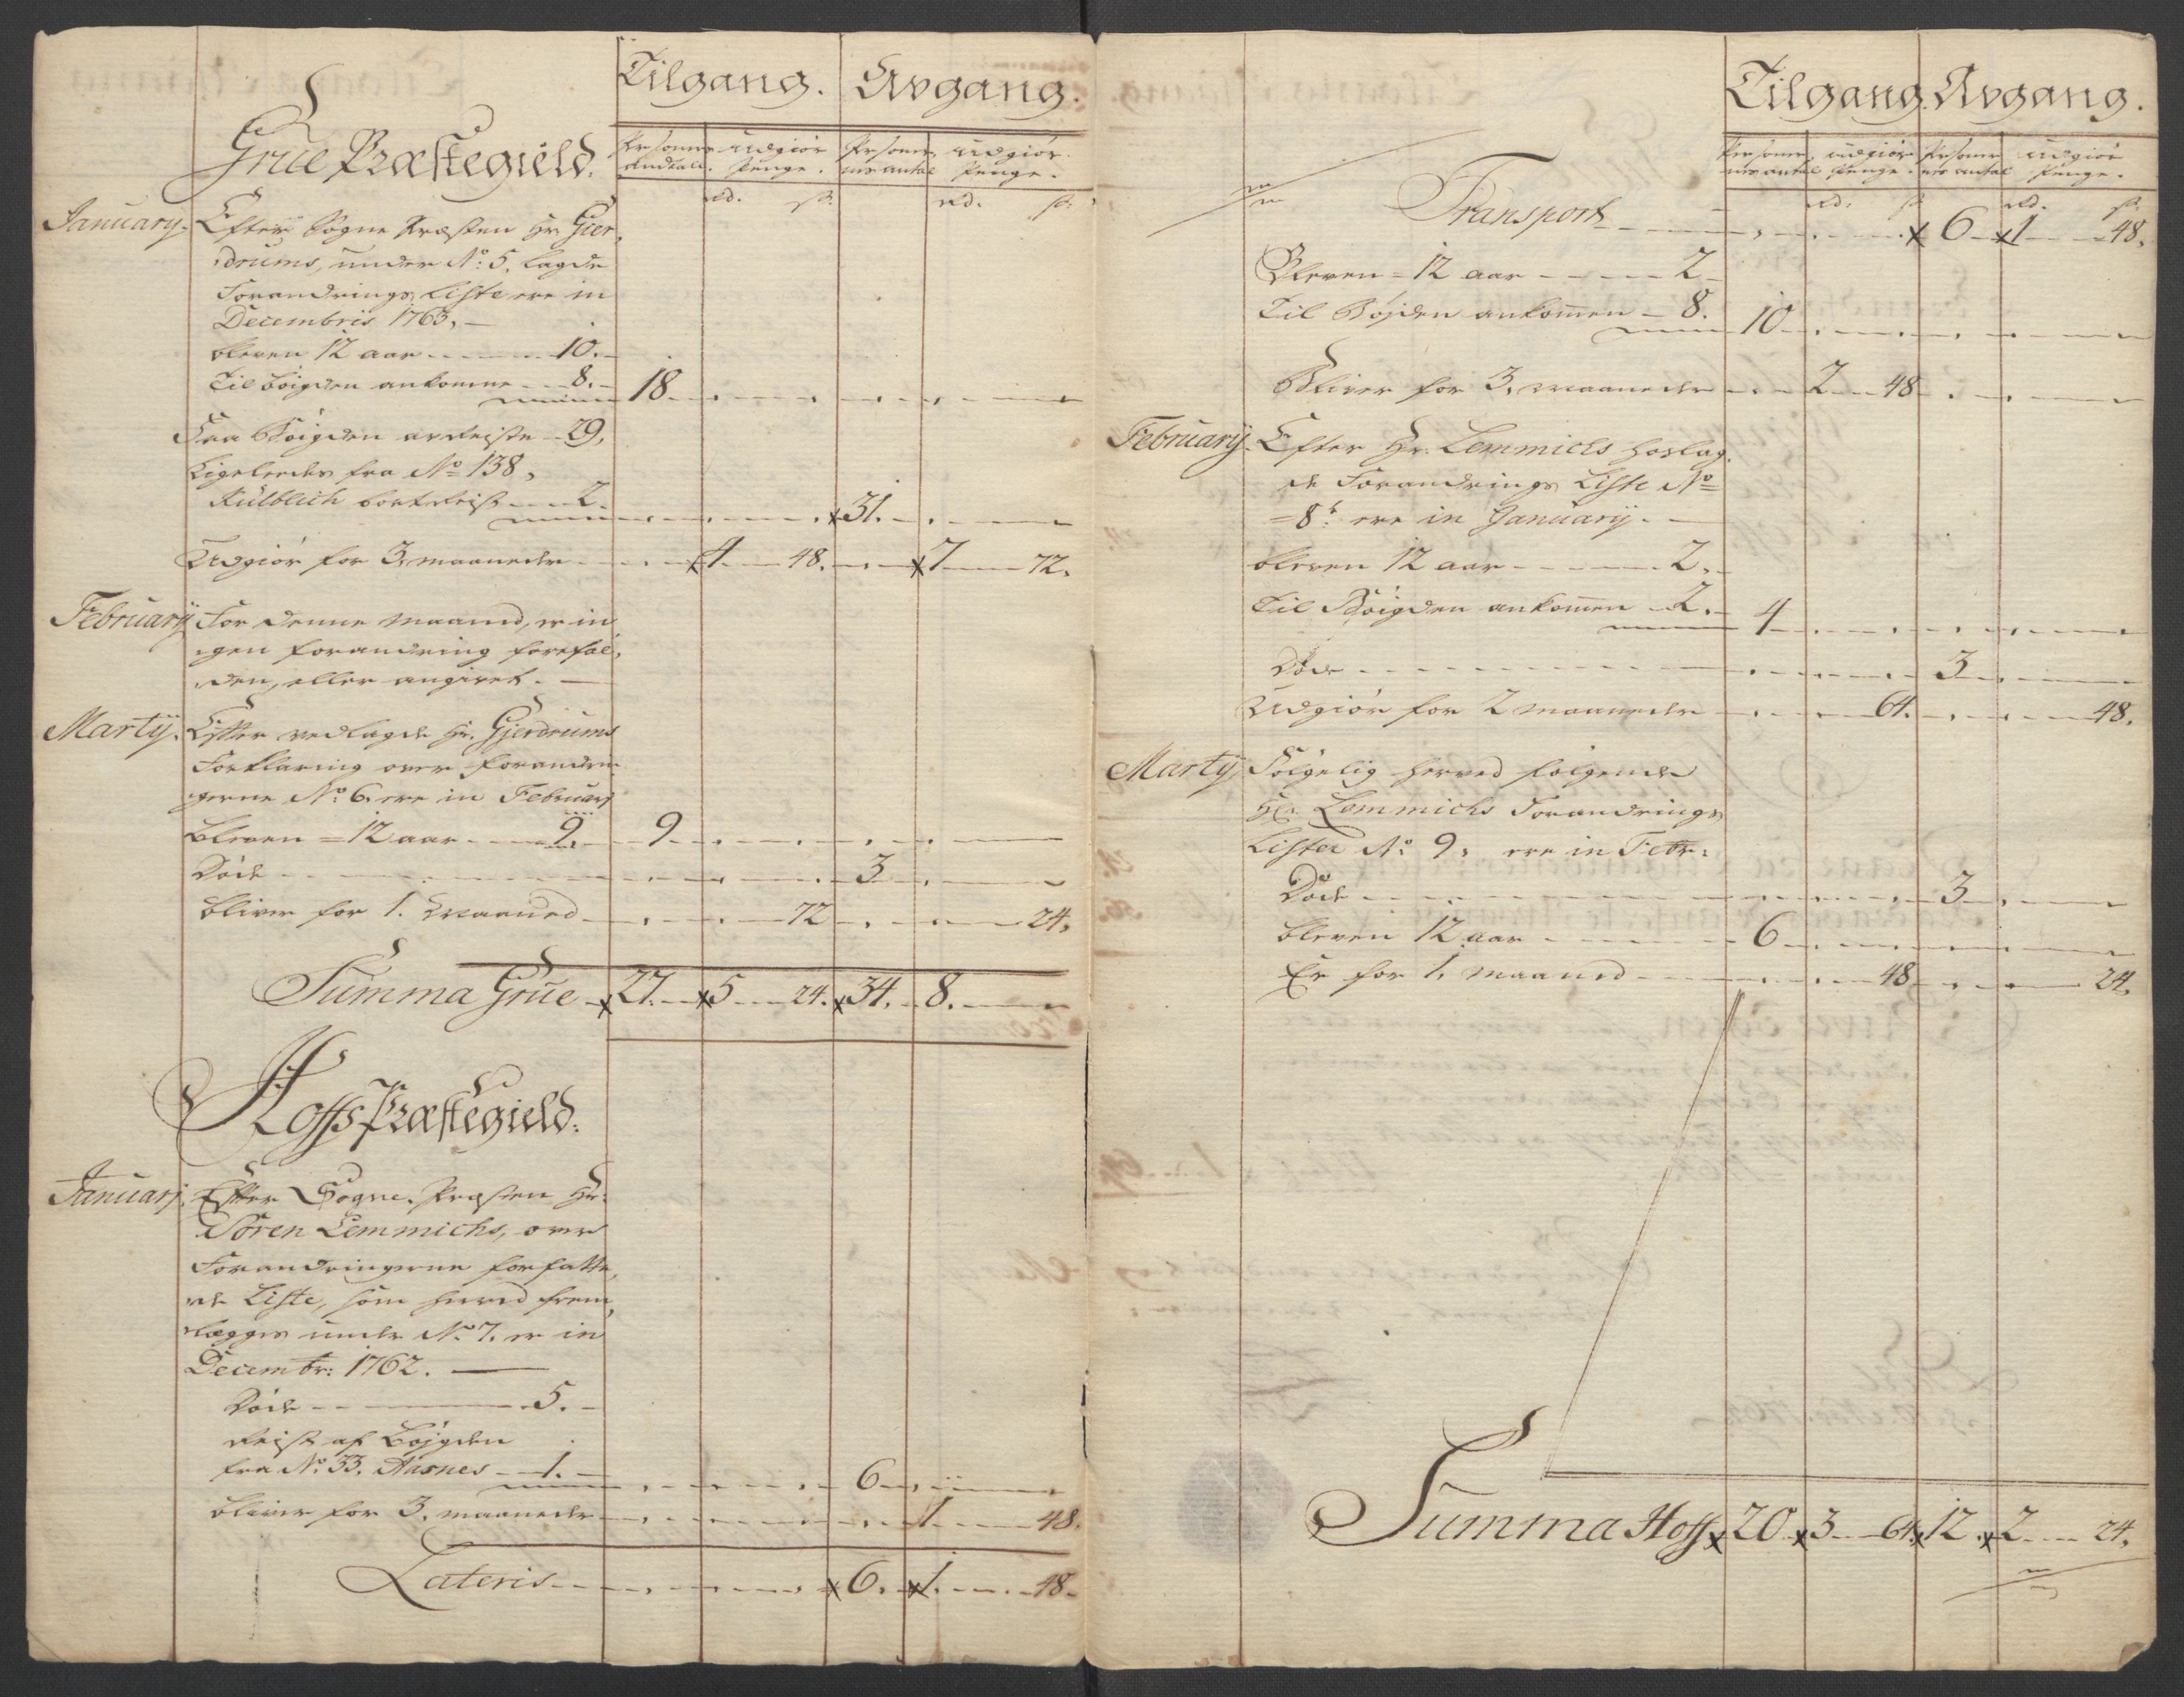 Tilgang. Avgang.
Personernes Andtall. udgiør Penge. Personernes antal udgiør Penge.
rd. s: rd. s:
Grue Præstegield.
January. Efter Sogne Præsten Hr. Gier,
drums, under No: 5, lagde
Forandrings Liste ere in
Decembris 1763,
bleven 12 aar 10.
Til bøigden ankomne 8. 18
Fra Bøigden avreiste 29,
Ligeledes fra No 138,
Kulblich bortreist 2. 31.
Udgiør for 3 maaneder 4 48. 7 72.
February For denne Maaned, er in
gen forandring forefal,
den, eller angivet.
Martij. Efter vedlagde Hr. Gjerdrums
Forklaring over forandrin
gerne No: 6. ere in Februarj
bleven 12 aar 9. 9
Døde 3
bliver for 1. Maaned 72 24,
Summa Grue 27. 5 24. 34. 8.
Hoffs Præstegield.
Januarj. Efter Sogne Præsten Hr.
Søren Lemmichs, over
Forandringerne forfatte,
de Liste, som herved frem,
lægges under No. 7. er in
Decembr: 1762.
Døde 5.
Reist af Bøjgden
fra No. 33. Aasnes 1. 6
bliver for 3, maaneder 1 48.
Lateris 6. 1. 48
Tilgang. Avgang.
Personernes antal udgiør Penge. Personernes antal udgiør Penge.
rd: s rd. s:
Transport 6 1 48.
Bleven 12 aar 2
Til Bøjden ankommen 8. 10
Bliver for 3, maaneder 2 48
Februarij. Efter Hr. Lemmichs hoslag
de Forandrings Liste No
8t ere in Januarij.
bleven 12 aar 2.
Til Bøigden ankommen 2. 4
Døde 3
Udgiør for 2 maaneder 64. 48.
Martij Følgelig herved følgende
Hr. Lemmichs Forandrings
Liste No: 9, ere in Febr:
Døde 3
bleven 12 aar 6
Er for 1. maaned 48 24,
Summa Hoff 20 3 64 12. 2 24,